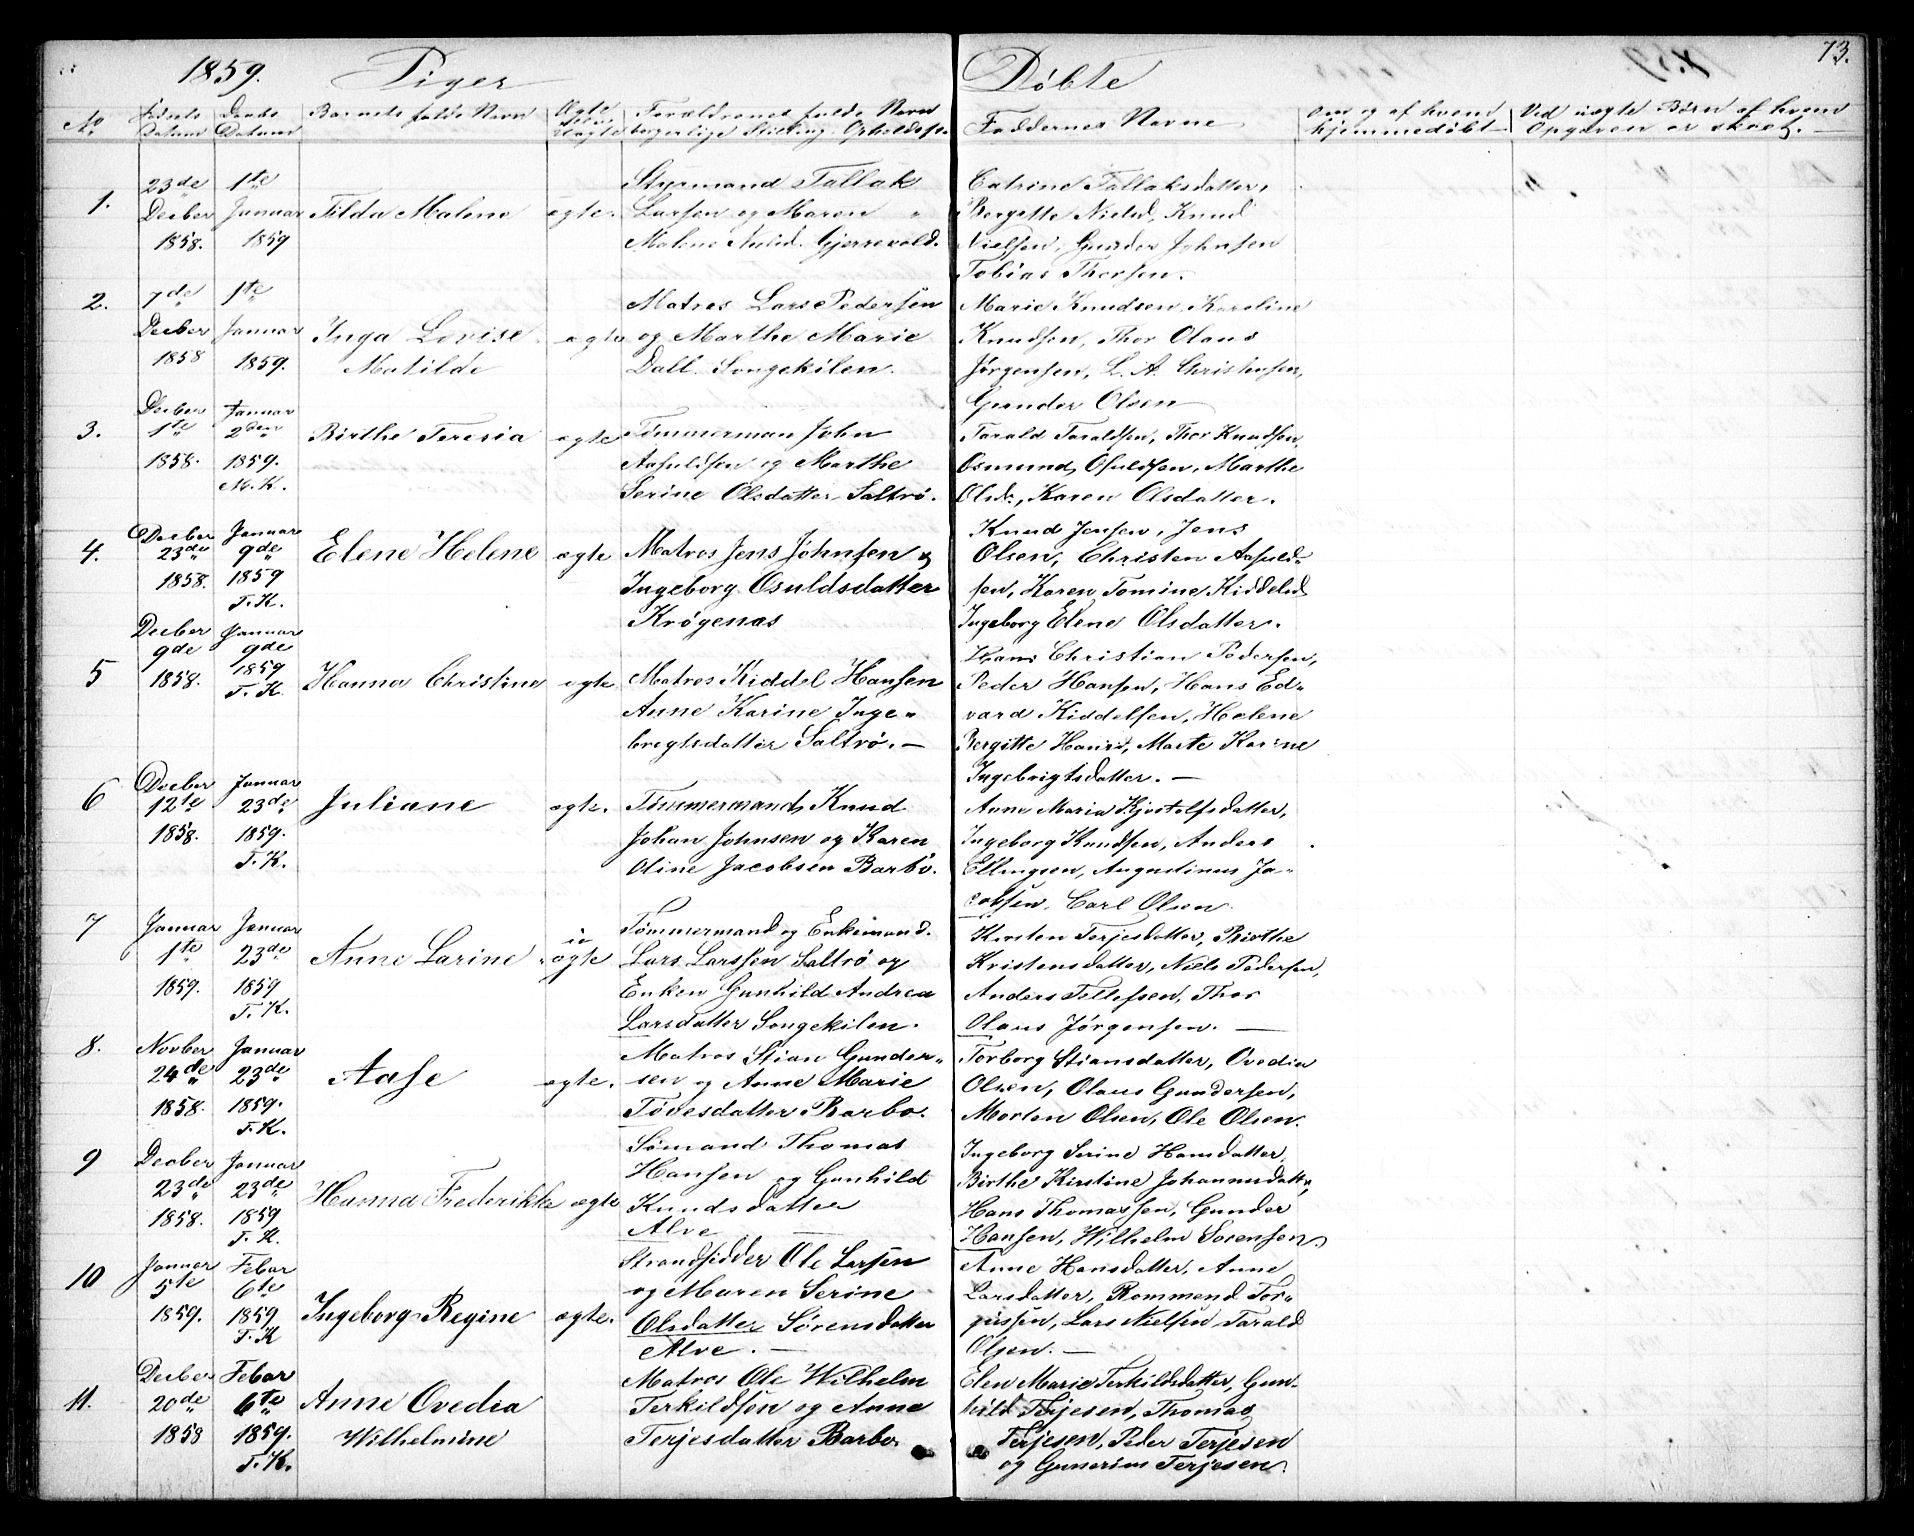 1859. Piger Døbte 73.
No Fødsels Datum Daabs Datum Barnets fulde Navn Ægte eller Uægte Forældrenes fulde Navn borgerlige Stilling Opholdssted Faddernes Navne Om og af hvem hjemmedøbt Ved uægte Børn af hvem Opgaven er skeet.
1. 23de Decber 1858. 1te Januar 1859 Tilda Malene ægte.
Styrmand Tallak
Larsen og Maren
Malene Gjerrevold.
Catrine Tallaksdatter,
Bergitte Nielsd, Knud
Nielssen, Gunder Johnsen
Tobias Thorsen.
2. 7de Decber 1858 1te Januar 1859. Inga Lovise Matilde ægte
Matros Lars Pedersen
og Marthe Marie
Dall. Songekilen.
Marie Knudsen, Karoline
Knudsen, Thor Olaus
Jørgensen, L. A. Christensen,
Gunder Olsen
3. Decber 1te 1858. Januar 2den 1859. M.K. Birthe Teresia ægte
Tømmerman John
Aasuldsen og Marthe
Serine Olsdatter Saltrø.
Tarald Taraldsen, Thor Knudsen,
Osmund Osuldsen, Marthe
Olsd., Karen Olsdatter.
4. Decber 23de 1858. Januar 9de 1859 T.K. Elene Helene ægte
Matros Jens Johnsen &
Ingeborg Osuldsdatter
Krøgenæs
Knud Jensen, Jens
Olsen, Christen Aasuld-
sen, Karen Tomine Kiddelsd
Ingeborg Elene Olsdatter.
5 Decber 9de 1858. Januar 9de 1859 T.K. Hanna Christine ægte
Matros Kiddel Hansen
Anne Karine Inge-
bregtsdatter Saltrø. —
Hans Christian Pedersen,
Peder Hansen, Hans Ed-
vard Kiddelsen, Helene
Bergitte Hansd, Marte Karine
Ingebrigtsdatter. —
6 Decber 12te 1858. Januar 23de 1859. T.K. Juliane ægte.
Tømmermand Knud
Johan Johnsen og Karen
Oline Jacobsen Barbo.
Anne Maria Kjostolfsdatter,
Ingeborg Knudsen, Anders
Ellingsen, Augustinus Ja-
cobsen, Carl Olsen
7 Januar 1te 1859. Januar 23de 1859 T.K. Anne Larine uægte
Tømmermand og Enkemand
Lars Larssen Saltrø og
Enken Gunhild Andrea
Larsdatter Songekilen.
Kirsten Terjesdatter, Birthe
Kristensdatter, Niels Pedersen,
Anders Tellefsen, Thor
Olaus Jørgensen. —
8. Novber 24de 1858. Januar 23de 1859. T.K. Aase ægte.
Matros Stian Gunder-
sen og Anne Marie
Tovesdatter Barbo.
Torborg Stiansdatter, Ovedia
Olsen, Olaus Gundersen,
Morten Olsen, Ole Olsen.
9 Decber 23de 1858. Januar 23de 1859 T.K. Hanna Frederikke ægte
Sømand Thomas
Hansen og Gunhild
Knudsdatter
Alve
Ingeborg Serine Hansdatter,
Birthe Kirstine Johannesdatter,
Hans Thomassen, Gunder
Hansen, Wilhelm Sørensen
10 Januar 5te 1859. Febar 6te 1859 T.K Ingeborg Regine ægte.
Strandsidder Ole Larsen
og Maren Serine
Olsdatter Sørensdatter
Alve. —
Anne Hansdatter, Anne
Larsdatter, Rommend Tor-
gussen, Lars Nielsen Tarald
Olsen. —
11. Decber 20de 1858 Febar 6te 1859. T.K. Anne Ovedia Wilhelmine
Matros Ole Wilhelm
Terkildsen og Anne
Terjesdatter Barbo
Elen Marie Terkildsdatter, Gun-
hild Terjesen, Thomas
Terjesen, Peder Terjesen
og Gunerius Terjesen.